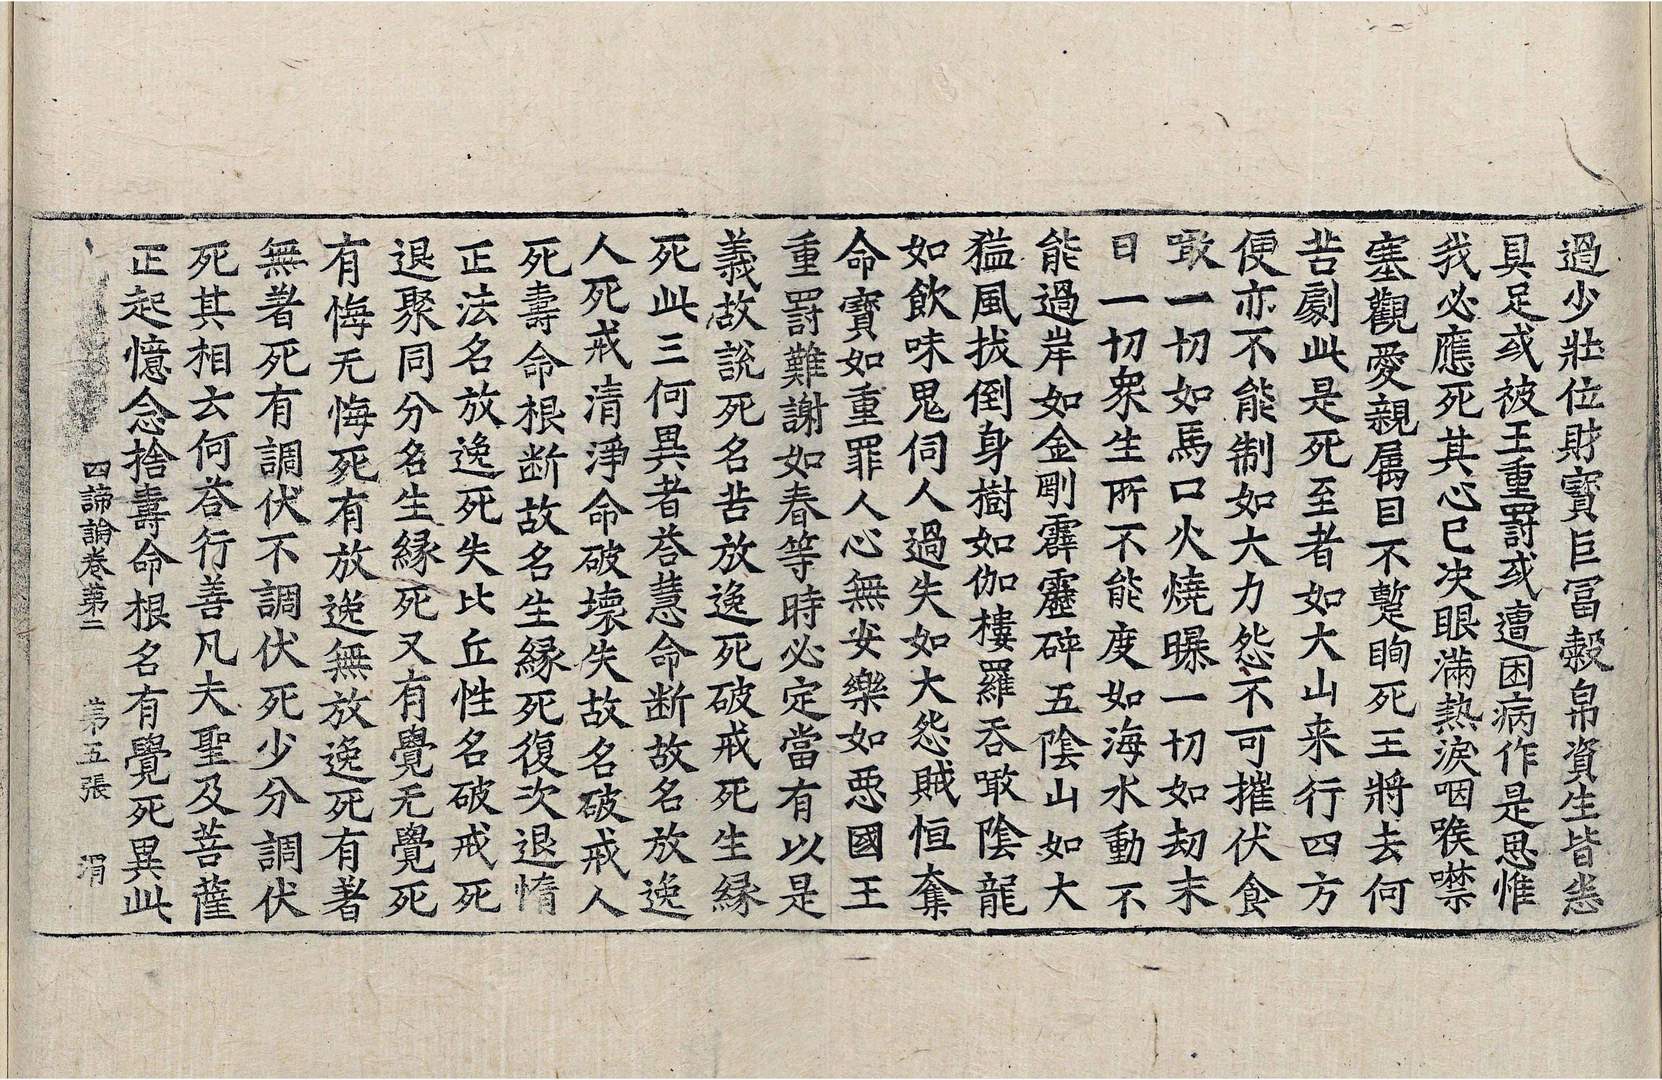 過少壯位財寶巨冨穀帛資生皆悉
具足或被王重罰或遭困病作是思惟
我必應死其心已决眼滿熱淚咽喉噤
塞觀愛親属目不蹔眴死王將去何
苦劇此是死至者如大山来行四方
便亦不能制如大力怨不可摧伏食
噉一切如馬口火燒曝一切如劫末
日一切衆生所不能度如海水動不
能過岸如金剛霹靂碎五陰山如大
猛風拔倒身樹如伽樓羅吞噉陰龍
如飲味鬼伺人過失如大怨賊恒奪
命寶如重罪人心無安樂如惡國王
重罰難謝如春等時必定當有以是
義故說死名苦放逸死破戒死生縁
死此三何異者荅慧命断故名放逸
人死戒清淨命破壞失故名破戒人
死壽命根断故名生縁死復次退惰
正法名放逸死失比丘性名破戒死
退聚同分名生縁死又有覺无覺死
有悔无悔死有放逸無放逸死有著
無著死有調伏不調伏死少分調伏
死其相云何荅行善凡夫聖及菩薩
正起憶念捨壽命根名有覺死異此
四諦論卷第二 第五張 涓